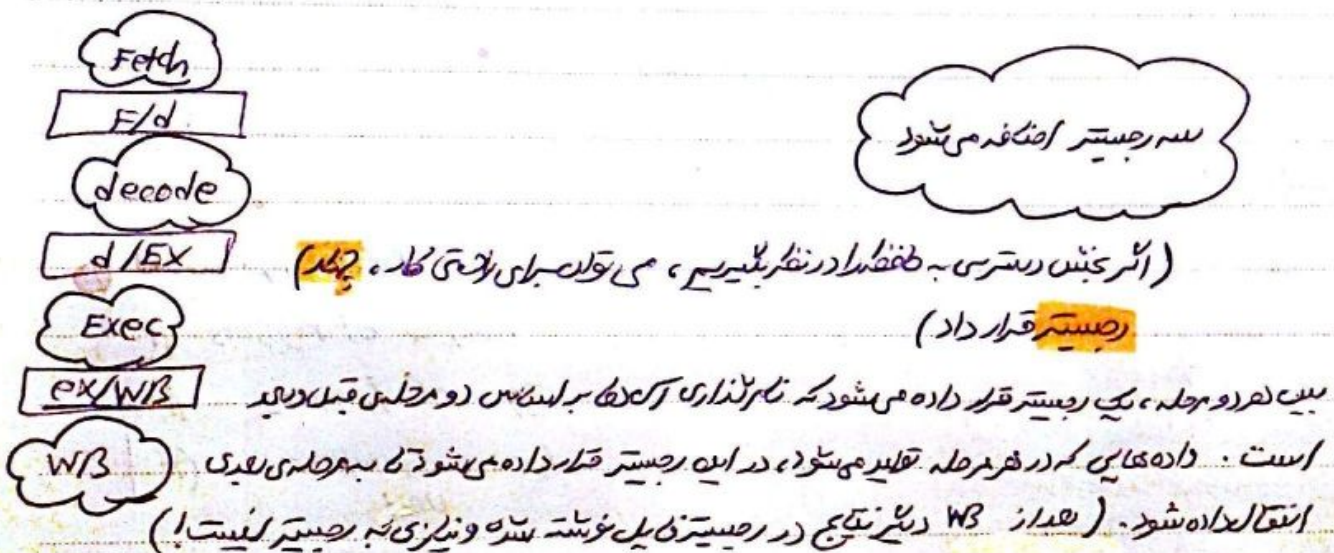 Fetch
F/d
decode
d/EX
Exec
ex/WB
WB
سه رجیستر اضافه می‌شود
(اگر بخش دسترسی به حافظه را در نظر بگیریم، می توان برای راحتی کار، چهار
رجیستر قرار داد)
بین هر دو مرحله، یک رجیستر قرار داده می‌شود که نام‌گذاری آن‌ها بر اساس دو مرحله‌ی قبل و بعد
است. داده‌هایی که در هر مرحله تولید می‌شود، در این رجیستر قرار داده می‌شود تا به مرحله‌ی بعدی
انتقال داده شود. (بعد از WB دیگر نتایج در رجیستر فایل نوشته شده و نیازی به رجیستر نیست!)